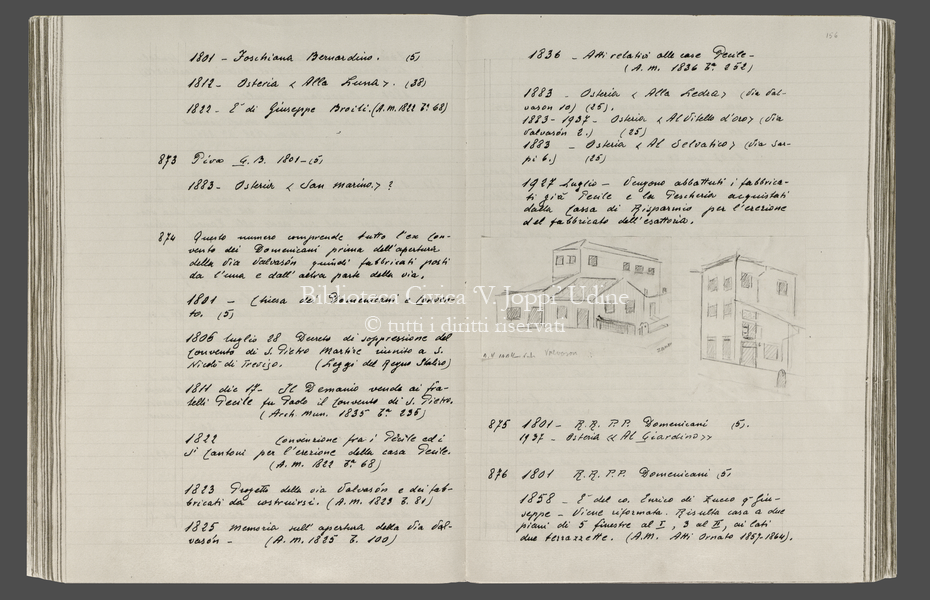 1801 – Foschiana Bernardino. (5)
1812 – Osteria « Alla Luna ». (38)
1822 – E' di Giuseppe Broili. (A.m. 1822 Ta 68)
873 Piva G.B. 1801 – (5)
1883 – Osteria « San Marino. » ?
874 Questo numero comprende tutto l'ex Con-
vento dei Domenicani prima dell'apertura
della Via Valvasòn quindi fabbricati posti
da l'una e dall'altra parte della via.
1801 – Chiesa dei Domenicani e Conven-
to. (5)
1806 luglio 28 Decreto di soppressione del
Convento di S. Pietro Martire riunito a S.
Nicolò di Treviso. (Leggi del Regno Italico)
1811 dic 17 – Il Demanio vende ai fra-
telli Pecile fu Paolo il Convento di S. Pietro.
(Arch. Mun. 1835 Ta 236)
1822 Convenzione fra i Pecile ed i
Si Cantoni per l'erezione della casa Pecile.
(A.m. 1822 Ta 68)
1823 Progetto della via Valvasòn e dei fab-
bricati da costruirsi. (A.m. 1823 T. 81)
1825 Memoria sull'apertura della Via Val-
vasòn – (A.m. 1825 T. 100)
156
1836 – Atti relativi alle case Pecile –
(A.m. 1836 Ta 252)
1883 – Osteria « Alla Ledra » (Via Val-
vason 10) (25).
1883 – 1937 – Osteria « Al Vitello d'oro » (Via
Valvasòn 2.) (25)
1883 – Osteria « Al Selvatico » (Via Sar-
pi 6.) (25)
1927 Luglio – Vengono abbattuti i fabbrica-
ti già Pecile e la Pescheria acquistati
dalla Cassa di Risparmio per l'erezione
del fabbricato dell'esattoria.
875 1801 – R.R. P.P. Domenicani (5).
1937 – Osteria « Al Giardino »
876 1801 R.R. P.P. Domenicani (5)
1858 – E' del co. Enrico di Zucco qm Giu-
seppe – Viene riformata. Risulta casa a due
piani di 5 finestre al I, 3 al II, ai lati
due terrazzette. (A.M. Atti Ornato 1857-1864).
Biblioteca Civica 'V. Joppi' Udine
© tutti i diritti riservati